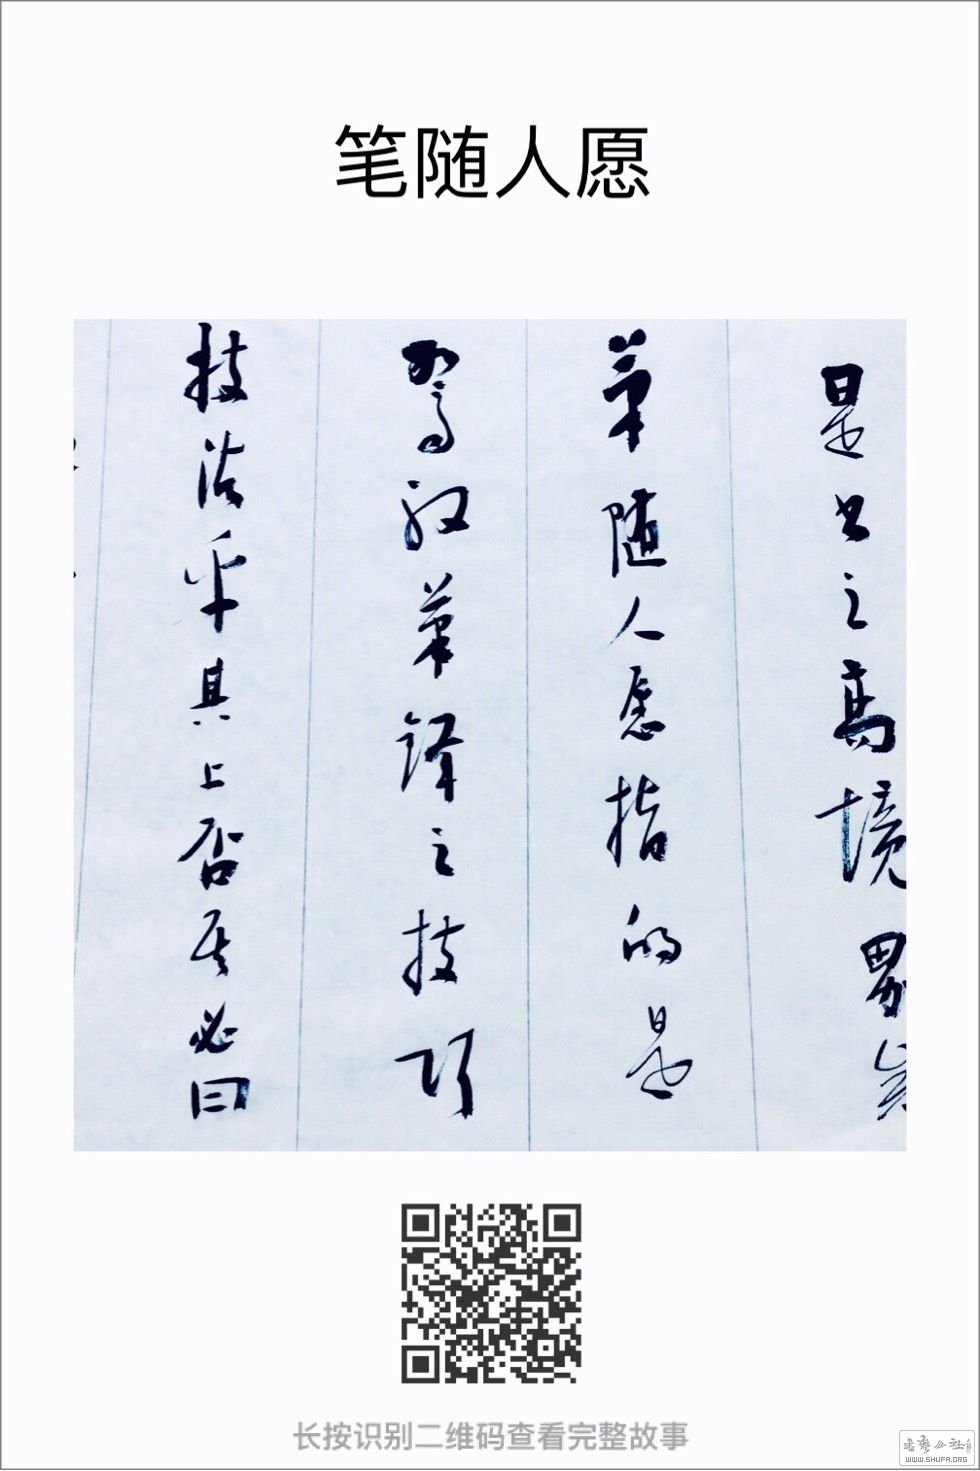 笔随人愿
是书之高境界
筆随人愿指的是
驾驭筆锋之技巧
技法乎其上否其必曰
长按识别二维码查看完整故事
WWW.SHUFA.ORG